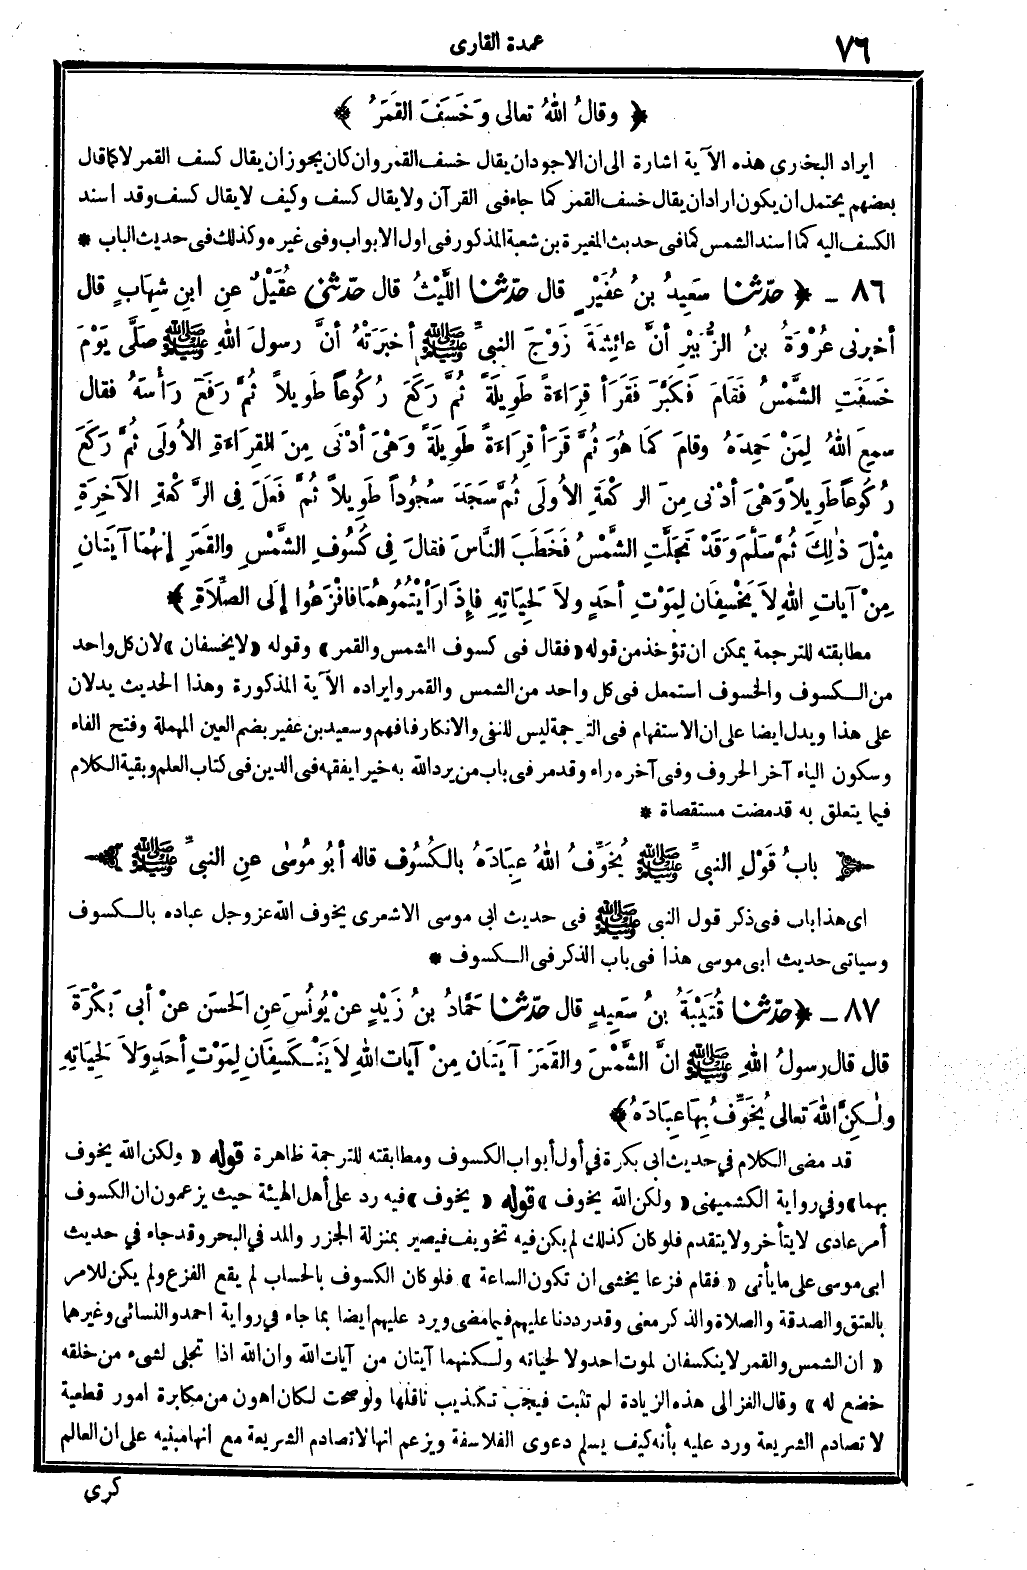 ٧٦
عمدة القارى
﴿ وقالُ اللهُ تعالى وَخَسَفَ القَمَرُ ﴾
ايراد البخارى هذه الآية اشارة الى ان الاجود ان يقال خسف القمر وان كان يجوز ان يقال كسف القمر لا كما قال
بعضهم يحتمل ان يكون اراد ان يقال خسف القمر كما جاء فى القرآن ولا يقال كسف وكيف لا يقال كسف وقد اسند
الكسف اليه كما اسند الشمس كما فى حديث المغيرة بن شعبة المذكور فى اول الابواب وفى غيره وكذلك فى حديث الباب *
٨٦ ــ ﴿ حدّثنا سَعِيدُ بنُ عُفَيْرٍ قال حدّثنا اللَّيْثُ قال حدّثنى عُقَيْلٌ عنِ ابنِ شِهَابٍ قال
أخبرنى عُرْوَةُ بنُ الزُّبَيْرِ أنَّ عائِشةَ زَوْجَ النبىِّ ﷺ أخبَرَتْهُ أنَّ رسولَ اللهِ ﷺ صلَّى يَوْمَ
خَسَفَتِ الشَّمْسُ فَقَامَ فَكَبَّرَ فَقَرَأ قِرَاءَةً طَوِيلَةً ثُمَّ رَكَعَ رُكُوعاً طَوِيلاً ثُمَّ رَفَعَ رَأْسَهُ فقال
سمِعَ اللهُ لِمَنْ حَمِدَهُ وقامَ كَمَا هُوَ ثُمَّ قَرَأ قِرَاءَةً طَوِيلَةً وَهْىَ أدْنَى مِنَ القِرَاءَةِ الأُولَى ثُمَّ رَكَعَ
رُكُوعاً طَوِيلاً وَهْىَ أدْنى مِنَ الرَّكْعَةِ الأُولَى ثُمَّ سَجَدَ سُجُوداً طَوِيلاً ثُمَّ فَعَلَ فِى الرَّكْعَةِ الآخِرَةِ
مِثْلَ ذٰلِكَ ثُمَّ سَلَّمَ وَقَدْ تَجَلَّتِ الشَّمْسُ فَخَطَبَ النَّاسَ فقالَ فِى كُسُوفِ الشَّمْسِ والقَمَرِ إنهُمَا آيَتَانِ
مِنْ آيَاتِ اللهِ لاَ يَخْسِفَانِ لِمَوْتِ أحَدٍ ولاَ لِحَيَاتِهِ فإِذَا رَأيْتُمُوهُمَا فافْزَعُوا إلَى الصَّلاَةِ ﴾
مطابقته للترجمة يمكن ان تؤخذ من قوله « فقال فى كسوف الشمس والقمر » وقوله « لا يخسفان » لان كل واحد
من الكسوف والخسوف استعمل فى كل واحد من الشمس والقمر وايراده الآية المذكورة وهذا الحديث يدلان
على هذا ويدل ايضا على ان الاستفهام فى الترجمة ليس للنفى والانكار فافهم وسعيد بن عفير بضم العين المهملة وفتح الفاء
وسكون الياء آخر الحروف وفى آخره راء وقد مر فى باب من يرد الله به خيرا يفقهه فى الدين فى كتاب العلم وبقية الكلام
فيما يتعلق به قد مضت مستقصاة *
بابُ قَوْلِ النبىِّ ﷺ يُخَوِّفُ اللهُ عِبَادَهُ بالكُسُوف قاله أبُو مُوسٰى عنِ النبىِّ ﷺ
اى هذا باب فى ذكر قول النبى ﷺ فى حديث ابى موسى الاشعرى يخوف الله عز وجل عباده بالكسوف
وسياتى حديث ابى موسى هذا فى باب الذكر فى الكسوف *
٨٧ ــ ﴿ حدّثنا قُتَيْبَةُ بنُ سَعِيدٍ قال حدّثنا حَمَّادُ بنُ زَيْدٍ عنْ يُونُسَ عنِ الحَسَنِ عنْ أبى بَكْرَةَ
قال قال رسولُ اللهِ ﷺ انَّ الشَّمْسَ والقَمَرَ آيَتَانِ مِنْ آيَاتِ اللهِ لاَ يَنْكَسِفَانِ لِمَوْتِ أحَدٍ ولاَ لِحَيَاتِهِ
ولٰكِنَّ اللهَ تعالى يُخَوِّفُ بِهَا عِبَادَهُ ﴾
قد مضى الكلام في حديث ابى بكرة في أول أبواب الكسوف ومطابقته للترجمة ظاهرة قوله « ولكن الله يخوف
بهما » وفي رواية الكشميهنى « ولكن الله يخوف » قوله « يخوف » فيه رد على أهل الهيئة حيث يزعمون ان الكسوف
أمر عادى لا يتأخر ولا يتقدم فلو كان كذلك لم يكن فيه تخويف فيصير بمنزلة الجزر والمد في البحر وقد جاء في حديث
ابى موسى على ما يأتى « فقام فزعا يخشى ان تكون الساعة » فلو كان الكسوف بالحساب لم يقع الفزع ولم يكن للامر
بالعتق والصدقة والصلاة والذكر معنى وقد رددنا عليهم فيما مضى ويرد عليهم ايضا بما جاء في رواية احمد والنسائى وغيرهما
« ان الشمس والقمر لا ينكسفان لموت احد ولا لحياته ولكنهما آيتان من آيات الله وان الله اذا تجلى لشىء من خلقه
خضع له » وقال الغزالى هذه الزيادة لم تثبت فيجب تكذيب ناقلها ولو صحت لكان اهون من مكابرة امور قطعية
لا تصادم الشريعة ورد عليه بأنه كيف يسلم دعوى الفلاسفة ويزعم انها لا تصادم الشريعة مع انها مبنيه على ان العالم
كرى